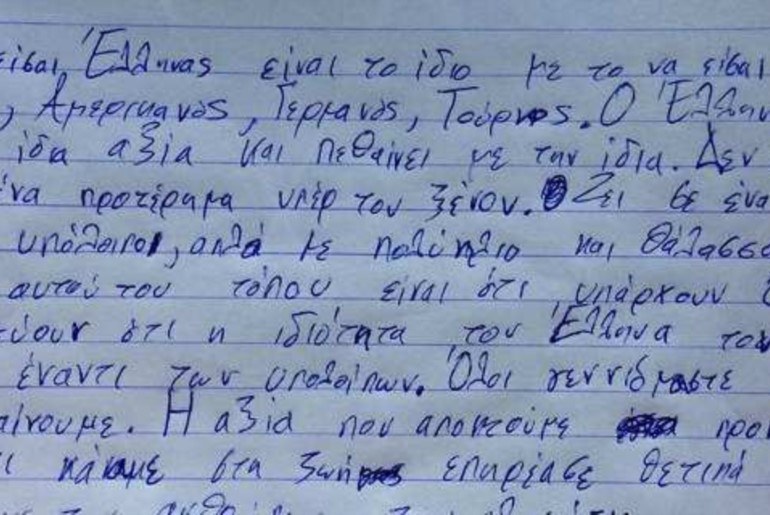 είσαι Έλληνας είναι το ίδιο με το να είσαι
, Αμερικανός, Γερμανός, Τούρκος. Ο Έλλην
ίδια αξία και πεθαίνει με την ίδια. Δεν
ένα προτέρημα υπέρ του ξένου. Ζει σε ένα
υπόλοιποι, αλλά με πολύ ήλιο και θάλασσα
αυτού του τόπου είναι ότι υπάρχουν
εύουν ότι η ιδιότητα του Έλληνα του
έναντι των υπολοίπων. Όλοι γεννιόμαστε
αίνουμε. Η αξία που αποκτούμε προ
κάναμε στη ζωή επηρέασε θετικά